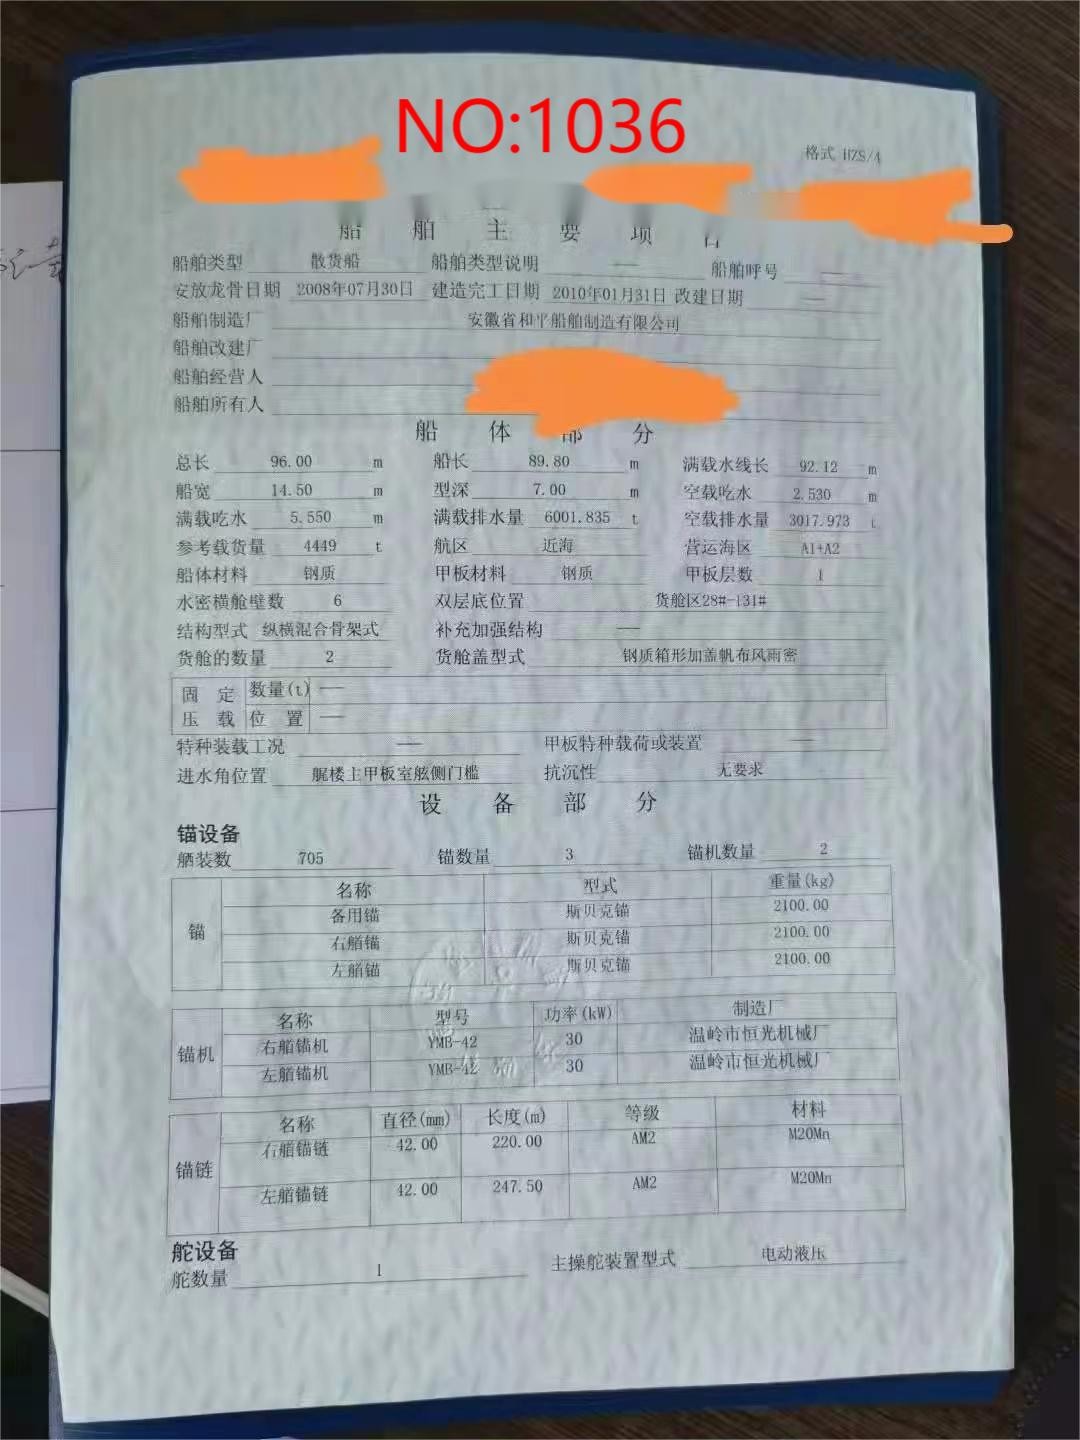 NO:1036
格式 HZS/4
船 舶 主 要 项 目
船舶类型 散货船 船舶类型说明 — 船舶呼号 —
安放龙骨日期 2008年07月30日 建造完工日期 2010年01月31日 改建日期 —
船舶制造厂 安徽省和平船舶制造有限公司
船舶改建厂
船舶经营人
船舶所有人
船 体 部 分
总长 96.00 m 船长 89.80 m 满载水线长 92.12 m
船宽 14.50 m 型深 7.00 m 空载吃水 2.530 m
满载吃水 5.550 m 满载排水量 6001.835 t 空载排水量 3017.973 t
参考载货量 4449 t 航区 近海 营运海区 A1+A2
船体材料 钢质 甲板材料 钢质 甲板层数 1
水密横舱壁数 6 双层底位置 货舱区28#-131#
结构型式 纵横混合骨架式 补充加强结构 —
货舱的数量 2 货舱盖型式 钢质箱形加盖帆布风雨密
固 定 数量(t) —
压 载 位 置 —
特种装载工况 — 甲板特种载荷或装置 —
进水角位置 艉楼上甲板室舷侧门槛 抗沉性 无要求
设 备 部 分
锚设备
舾装数 705 锚数量 3 锚机数量 2
锚 名称 型式 重量(kg)
备用锚 斯贝克锚 2100.00
右艏锚 斯贝克锚 2100.00
左艏锚 斯贝克锚 2100.00
锚机 名称 型号 功率(kW) 制造厂
右艏锚机 YMB-42 30 温岭市恒光机械厂
左艏锚机 YMB-42 30 温岭市恒光机械厂
锚链 名称 直径(mm) 长度(m) 等级 材料
右艏锚链 42.00 220.00 AM2 M20Mn
左艏锚链 42.00 247.50 AM2 M20Mn
舵设备
舵数量 1 主操舵装置型式 电动液压